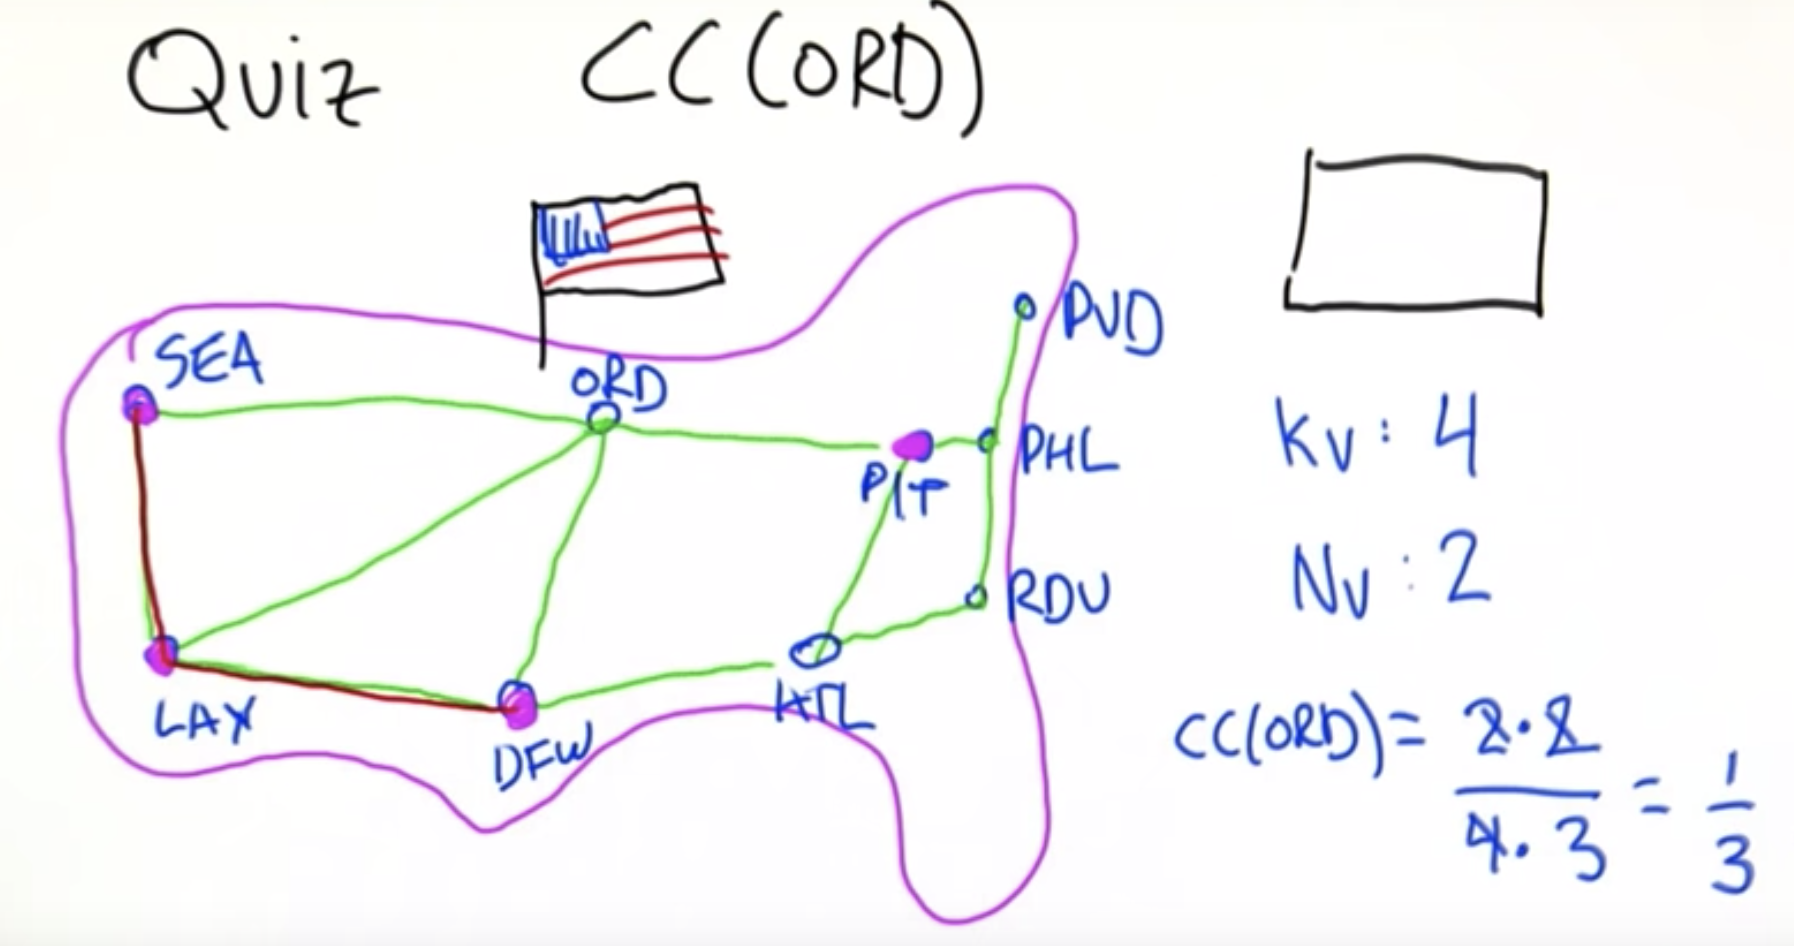 Quiz CC(ORD)
SEA
ORD
PVD
PIT
PHL
RDU
LAX
DFW
ATL
Kv: 4
Nv: 2
CC(ORD) = 2·2 / 4·3 = 1/3